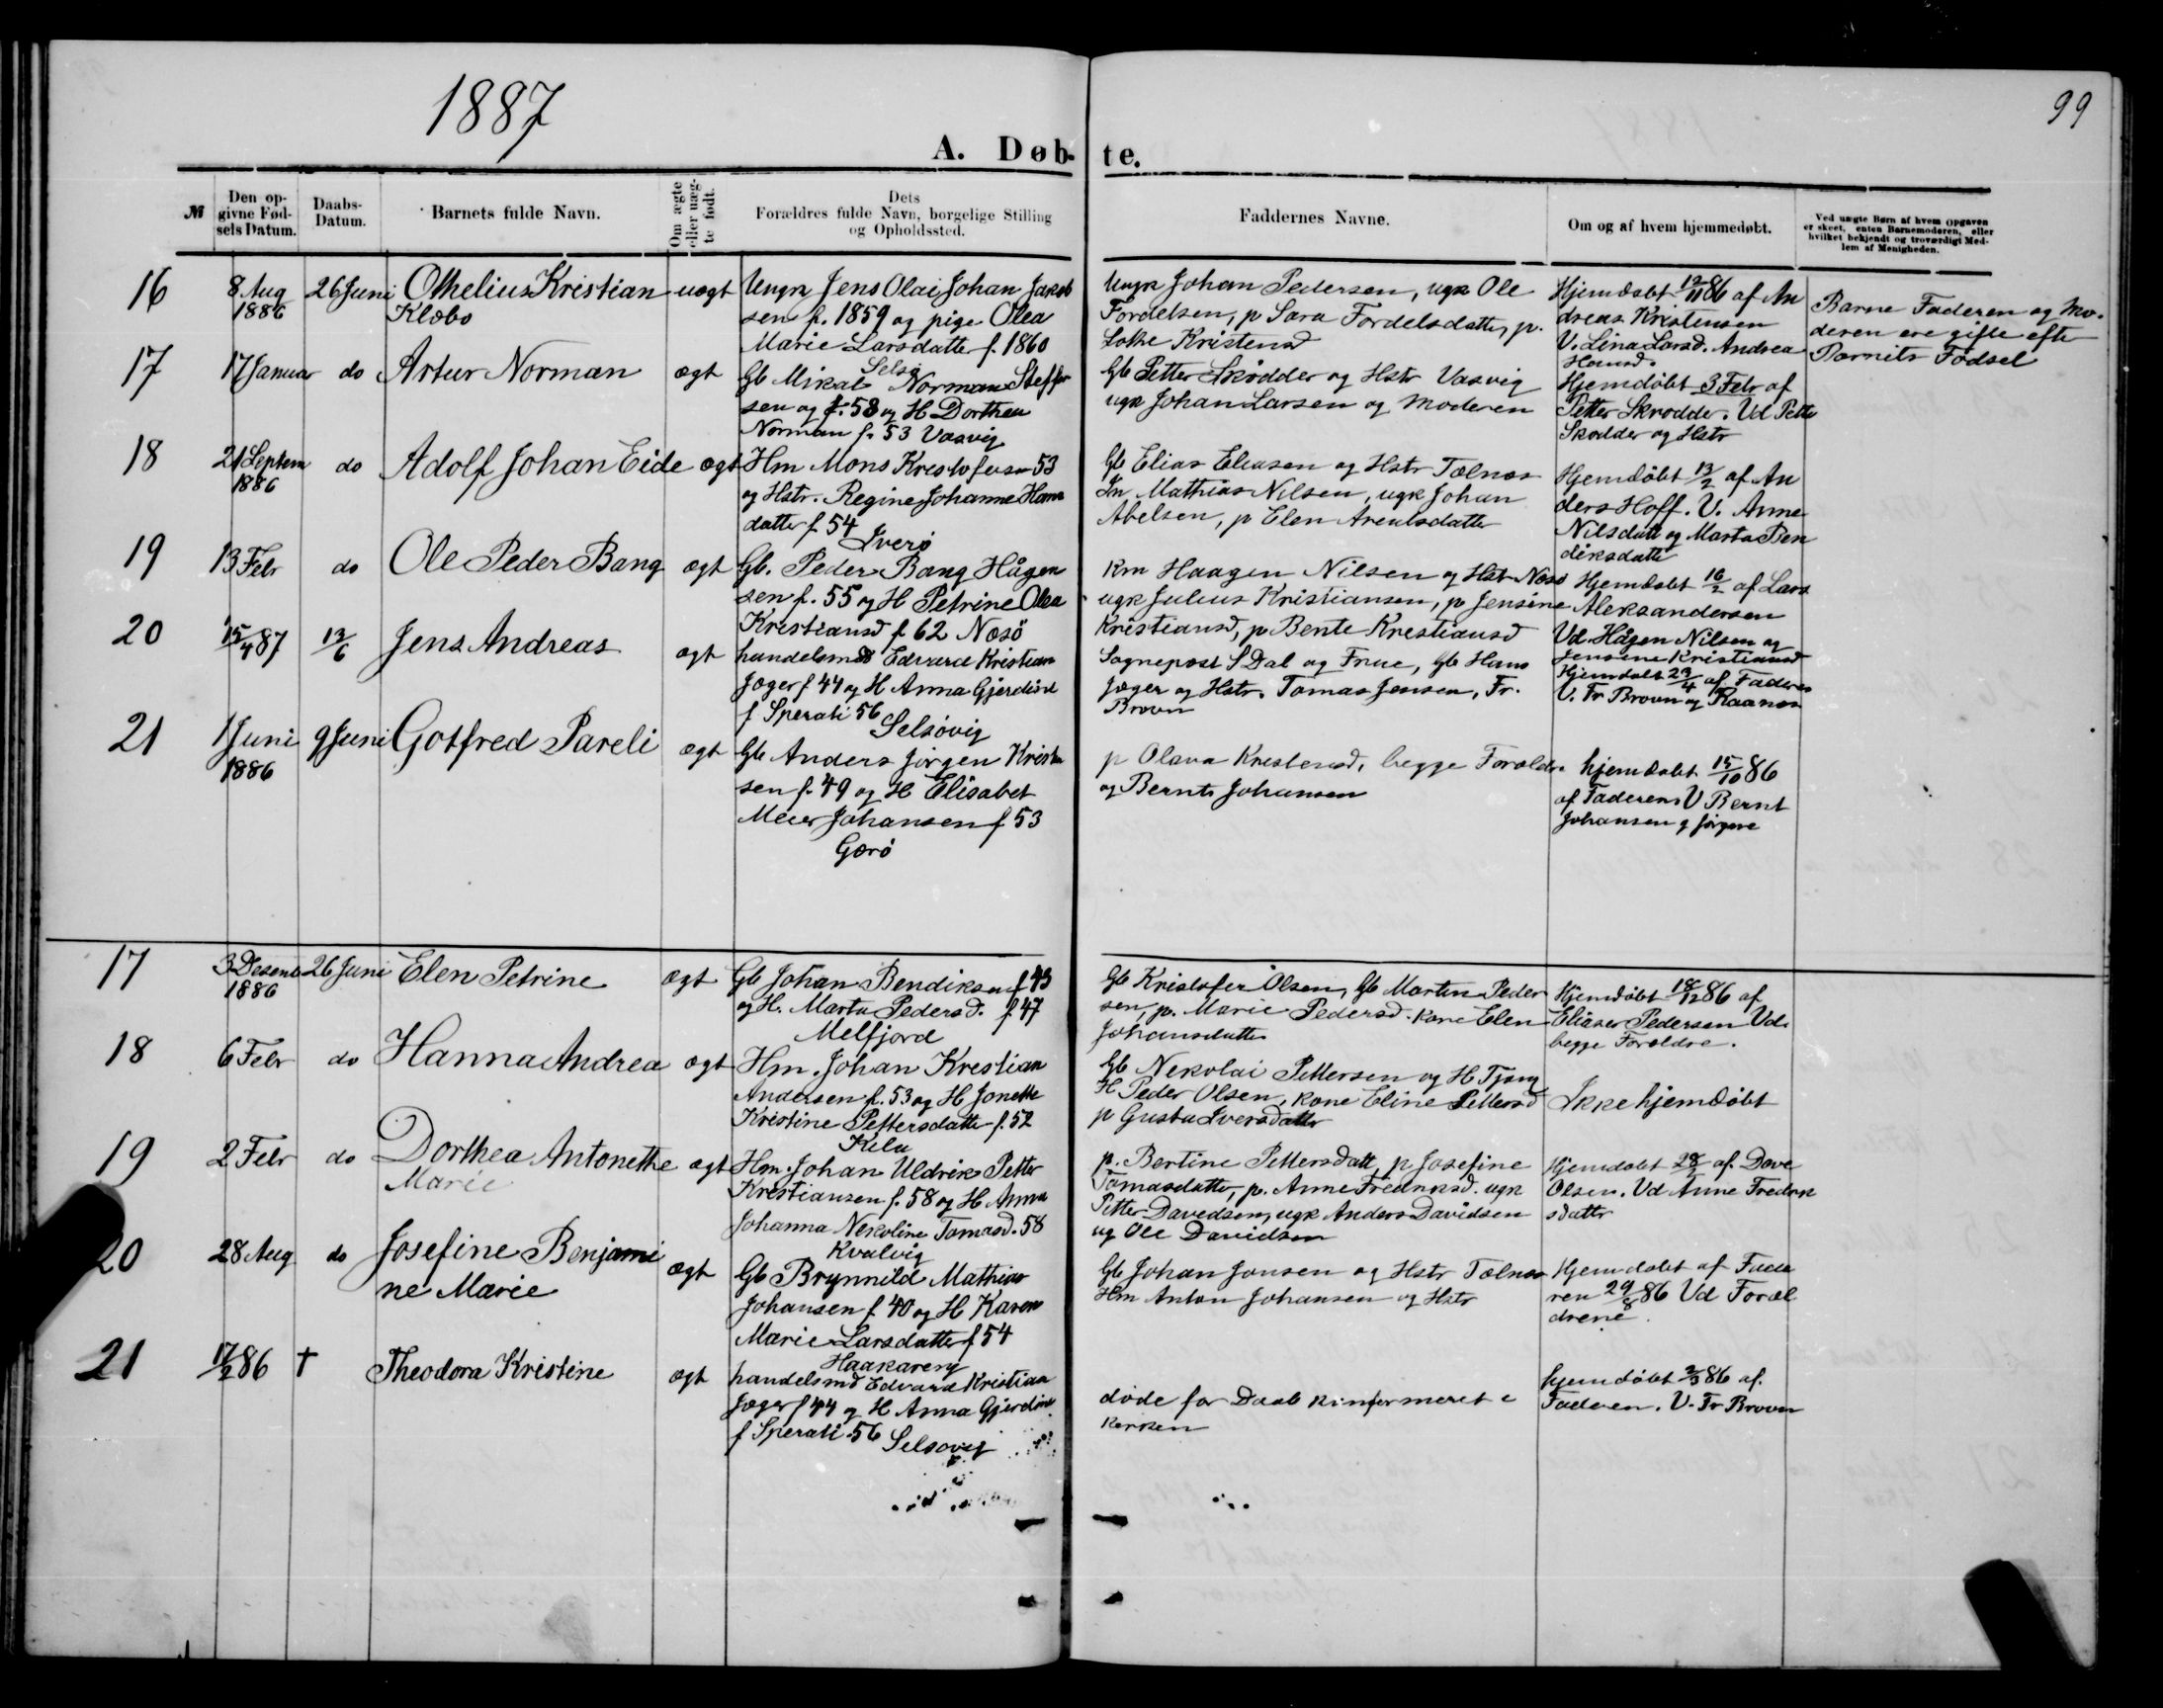 1887
99
A. Døbte.
№
Den opgivne Fødsels Datum.
Daabs-Datum.
Barnets fulde Navn.
Om ægte eller uægte født.
Dets Forældres fulde Navn, borgelige Stilling og Opholdssted.
Faddernes Navne.
Om og af hvem hjemmedøbt.
Ved uægte Børn af hvem Opgaven er skeet, enten Barnemoderen, eller hvilket bekjendt og troværdigt Medlem af Menigheden.
16
8 Aug
1886
26 Juni
Othelius Kristian
Klæbo
uægt
Ungk Jens Olai Johan Jakob
sen f. 1859 og pige Olea
Marie Larsdatter f. 1860
Selsö
Ungk Johan Pedersen, ugk Ole
Fordelsen, p Sara Fordelsdatter, p.
Kristensd
Hjemdøbt 12/11 86 af An
dreas Kristensen
V. Lina Larsd. Andrea
Hansd.
Barne Faderen og Mo-
deren ere gifte efte
Barnits Fødsel
17
17 Januar
do
Artur Norman
ægt
Gb Mikal Norman Steffen
sen og f. 58 og H Dorthea
Norman f. 53 Vasvig
Gb Petter Skrödder og Hstr Vasvig
ugk Johan Larsen og Moderen
Hjemdöbt 3 Febr af
Petter Skrödder. Vd Pette
Skrödder og Hstr
18
21 Septem
1886
do
Adolf Johan Eide
ægt
Hm Mons Kristofersen 53
og Hstr. Regine Johanne Hans
datter f. 54
Sverö
Gb Elias Eliasen og Hstr Tælnæs
In Mathias Nilsen, ugk Johan
Abelsen, p Elen Arentsdatte
Hjemdöbt 13/2 af An
ders Hoff. V. Anne
Nilsdatt og Marta Ben
diksdatte
19
13 Febr
do
Ole Peder Bang
ægt
Gb. Peder Bang Hågen
sen f. 55 og H Petrine Olea
Kristiansd f 62 Næsö
Km Haagen Nilsen og Hstr Næsö
ugk Julius Kristiansen, p Jensine
Kristiansd, p Bente Krestiansd
Hjemdøbt 16/2 af Lars
Aleksandersen
Vd. Hågen Nilsen og
Jensine Kristiansd
20
15/4 87
12/6
Jens Andreas
ægt
handelsmd Edvard Kristian
Jæger f 44 og H Anna Gjerdine
f Sperati 56
Selsövig
Sognepræst S Dal og Frue, Gb Hans
Jæger og Hstr. Tomas Jensen, Fr.
Brovn
Hjemdøbt 29/4 af Faderen
V. Fr Brovn og Raanes
21
1 Juni
1886
9 Juni
Gotfred Pareli
ægt
Gb Anders Jörgen Kristen
sen f. 49 og H Elisabet
Meier Johansen f 53
Gærö
p Olava Krestensd, begge Forældr.
og Bernts Johansen
hjemdøbt 15/10 86
af Faderen V Bernt
Johansen g
17
3 Desemb
1886
26 Juni
Elen Petrine
Ægt
Gb Johan Bendiksen f 43
og H. Marta Pedersd. f. 47
Melfjord
Gb Kristofer Olsen, Gb Martin Peder
sen, p. Marie Pedersd. kone Elen
Johansdatte
Hjemdöbt 18/12 86 af
Eliaser Pedersen Vd.
begge Forældre.
18
6 Febr
do
Hanna Andrea
ægt
Hm. Johan Krestian
Andersen f. 53 og H Jonette
Kristine Pettersdatte f. 52
Kila
Gb Nekolai Pettersen og H Tjong
H Peder Olsen, kone Eline Pettersd
p Gusta Iversdatter
Ikke hjemdöbt
19
2 Febr
do
Dorthea Antonethe
Marie
ægt
Hm. Johan Uldrik Petter
Krestiansen f. 58 og H Anna
Johanna Nekoline Tomasd. 58
Kvalvig
p. Bertine Pettersdatt, p Josefine
Tomasdatter, p. Anne Fredriksd. ugk
Petter Davedsen, ugk Anders Davidsen
og Ole Davidsen
Hjemdøbt 28/2 af. Dave
Olsen. Vd Anne Fredrik
sdattr
20
28 Aug
do
Josefine Benjami
ne Marie
ægt
Gb Brynnild Mathias
Johansen f. 40 og H Karen
Marie Larsdatter f. 54
Gb Johan Jonsen og Hstr Tælnæs
Hm Anton Johansen og Hstr
Hjemdøbt af Fade
ren 29/8 86 Vd Foræl
drene.
21
17/2 86
†
Theodora Kristine
ægt
handelsmd Edvard Kristian
Jæger f 44 og H Anna Gjerdine
f Sperati 56
Selsovig
döde for Daab kinfermeret i
Kerken
hjemdöbt 2/3 86 af.
Faderen. V. Fr Brovn